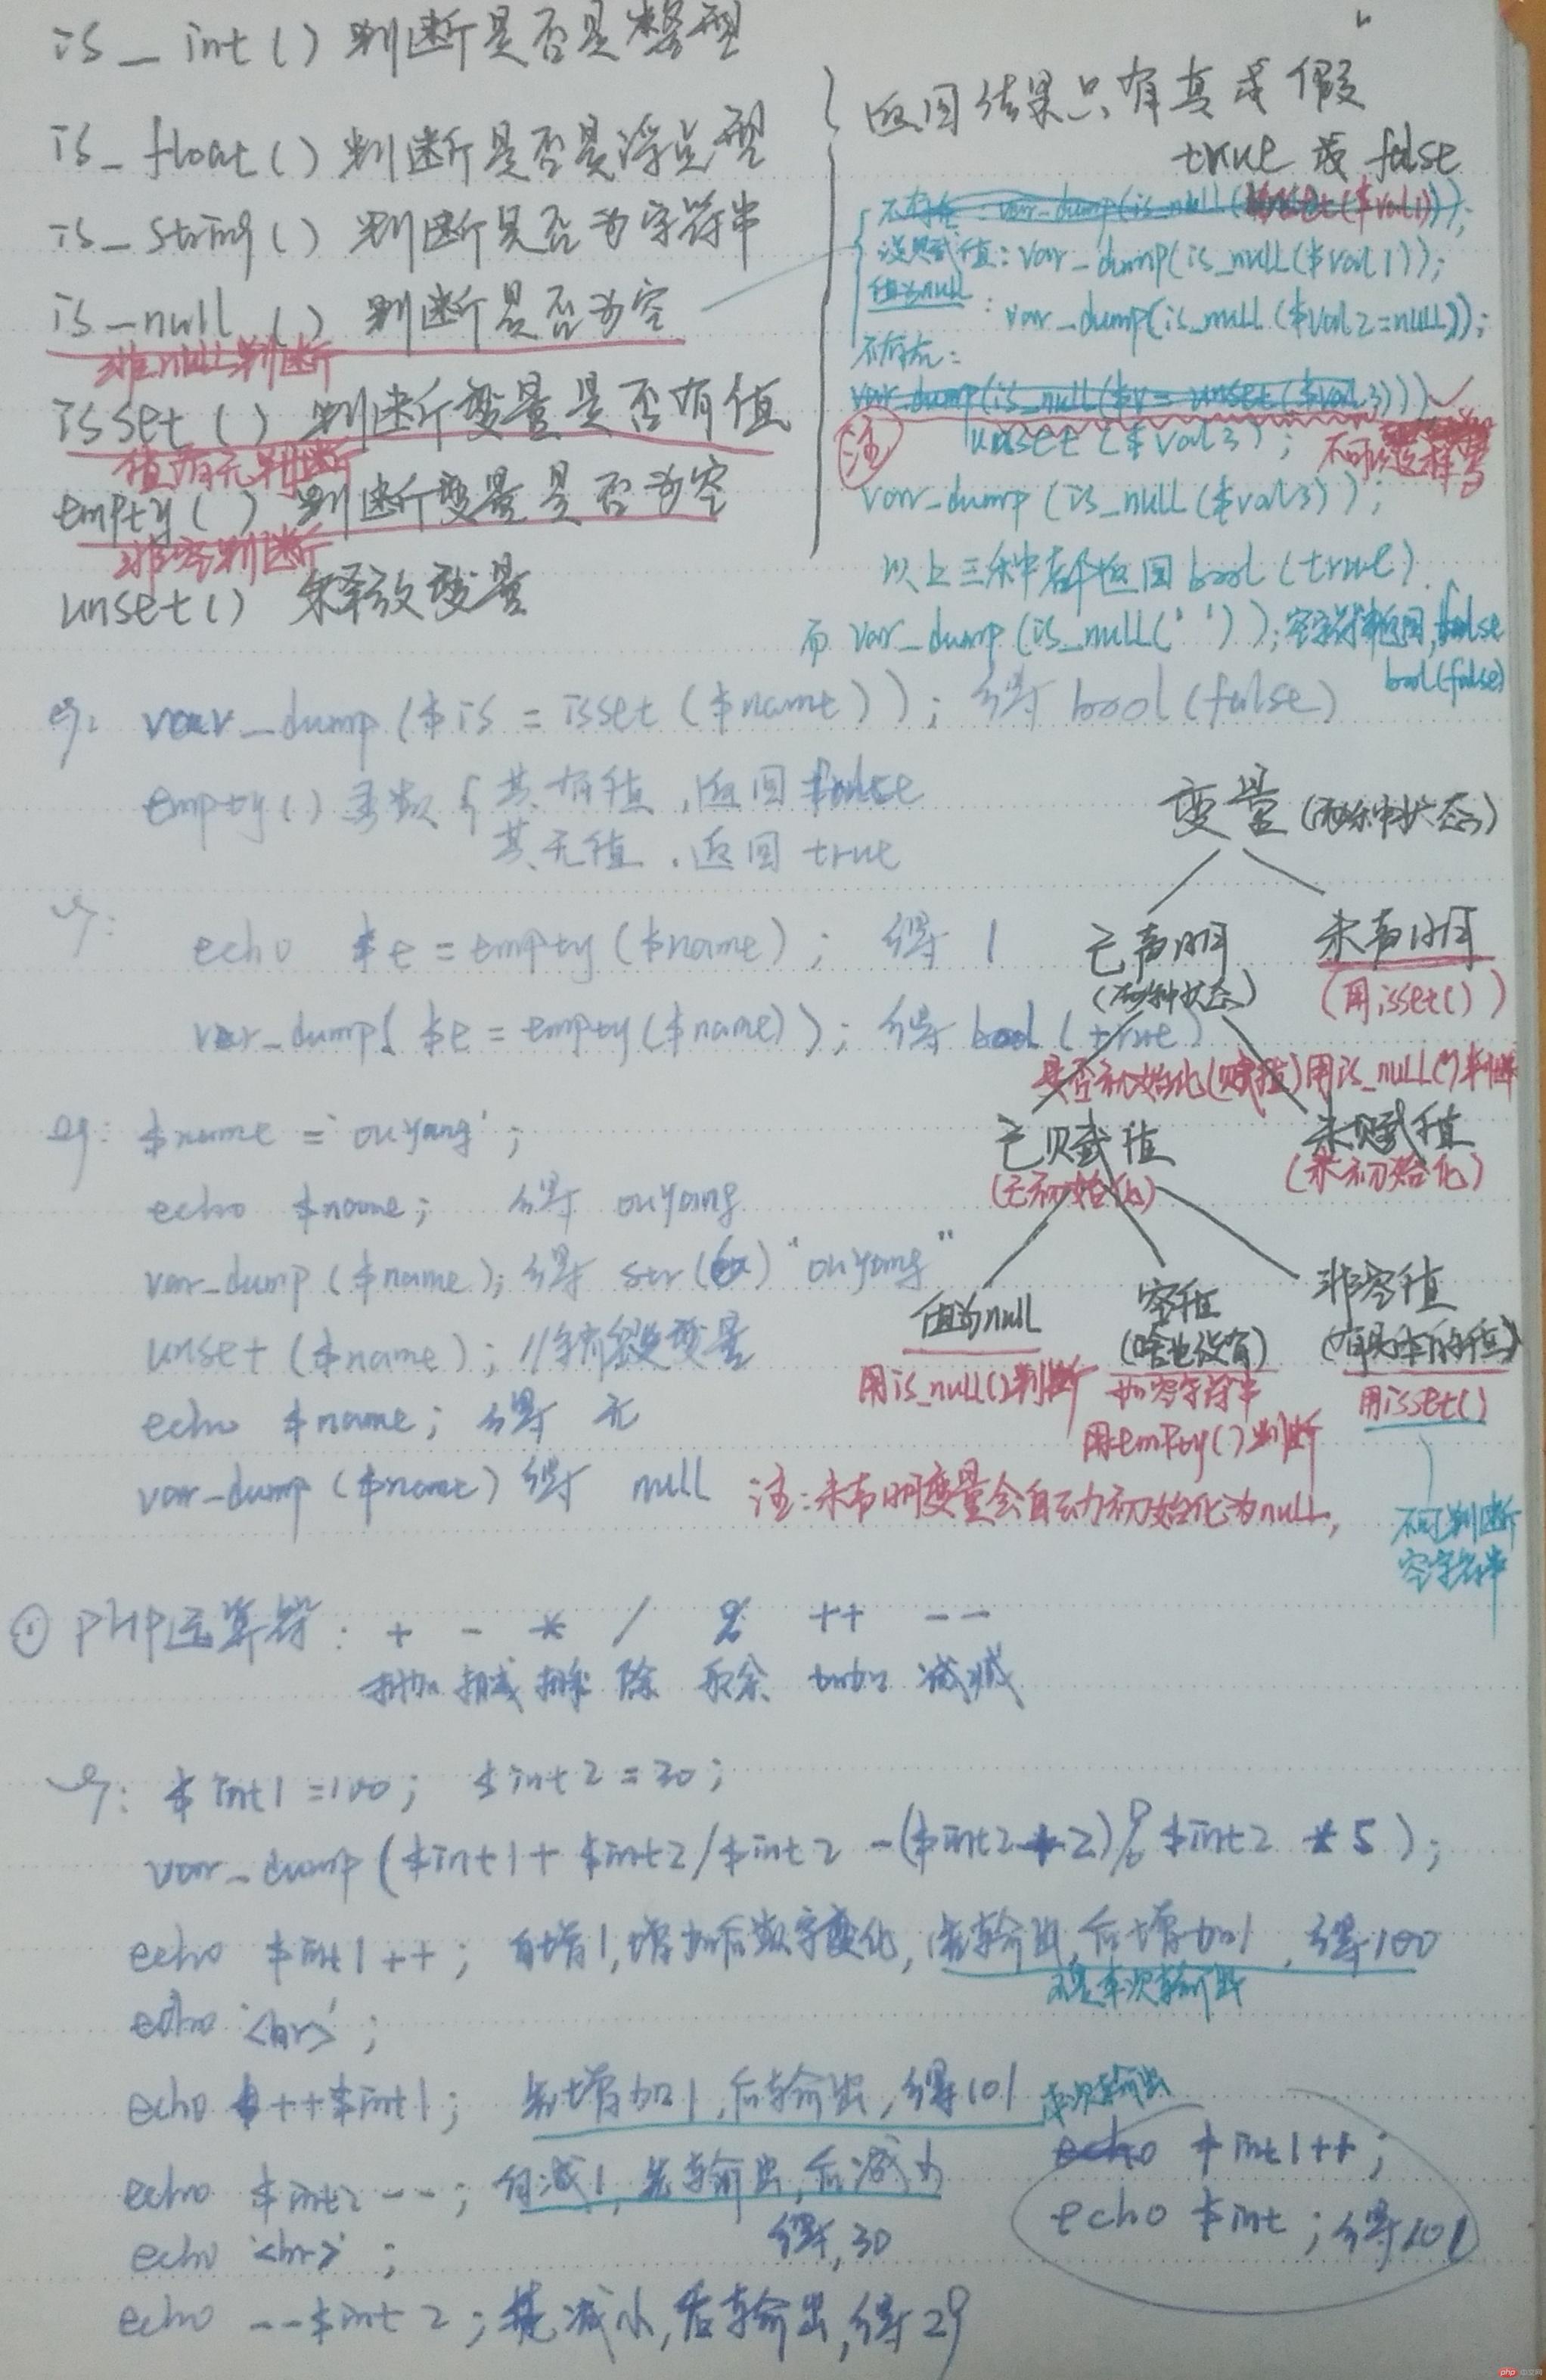 is_int() 判断是否是整型
is_float() 判断是否是浮点型
is_string() 判断是否为字符串
is_null() 判断是否为空
非null判断
isset() 判断变量是否有值
值有无判断
empty() 判断变量是否为空
非空判断
unset() 释放变量
返回结果只有真或假
true 或 false
不存在: var_dump(is_null(unset($val1)));
没赋值: var_dump(is_null($val1));
值为null: var_dump(is_null($val2=null));
不存在:
var_dump(is_null($v=unset($val3)))
注
unset($val3); 不可
var_dump(is_null($val3));
以上三种都返回bool(true).
而 var_dump(is_null('')); 空字符串返回, false
bool(false)
eg: var_dump($is = isset($name)); 得 bool(false)
empty() 函数 { 其有值,返回false
其无值,返回true
eg: echo $e = empty($name); 得 1
var_dump($e = empty($name)); 得 bool(true)
eg: $name = 'ouyang';
echo $name; 得 ouyang
var_dump($name); 得 str(6) "ouyang"
unset($name); //销毁变量
echo $name; 得 无
var_dump($name) 得 null
变量(两种状态)
已声明
(两种状态)
未声明
(用isset())
是否初始化(赋值)用is_null()判断
已赋值
(已初始化)
未赋值
(未初始化)
值为null
用is_null()判断
空值
(啥也没有)
如空字符串
用empty()判断
非空值
(有具体的值)
用isset()
不可判断
空字符串
注:未声明变量会自动初始化为null,
① PHP运算符: + - * / % ++ --
相加 相减 相乘 除 取余 加加 减减
eg: $int1=100; $int2=30;
var_dump($int1+$int2/$int2-($int2*2)%$int2*5);
echo $int1++; 自增1,增加后数字变化,先输出,后增加1,得100
不是本次输出
echo '<hr>';
echo ++$int1; 先增加1,后输出,得101 本次输出
echo $int2--; 自减1,先输出,后减小
得,30
echo '<hr>';
echo --$int2; 先减小,后输出,得29
echo $int1++;
echo $int; 得101
php 中文网